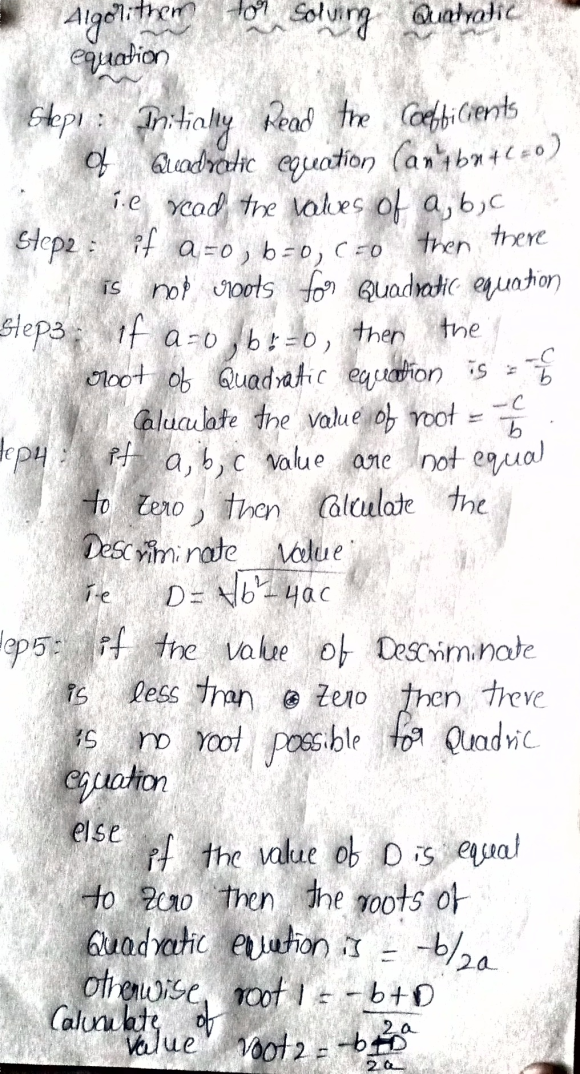 Algorithem for Solving Quatratic
equation
Step1 : Initially Read the Coefficients
Of Quadratic equation (ax²+bx+c=0)
i.e read the values of a,b,c
Step2 : if a=0, b=0, c=0 then there
is not roots for Quadratic equation
Step3 : if a=0, b!=0, then the
root of Quadratic equation is = -c/b
Caluculate the value of root = -c/b .
tep4 : if a, b, c value are not equal
to Zero, then Calculate the
Descriminate value
i.e D= √b²-4ac
tep5 : if the value of Descriminate
is less than Zero then there
is no root possible for Quadric
equation
else
if the value of D is equal
to zero then the roots of
Quadratic equation is = -b/2a
Otherwise, root 1 = -b+D/2a
Calculate of
value root2 = /2a